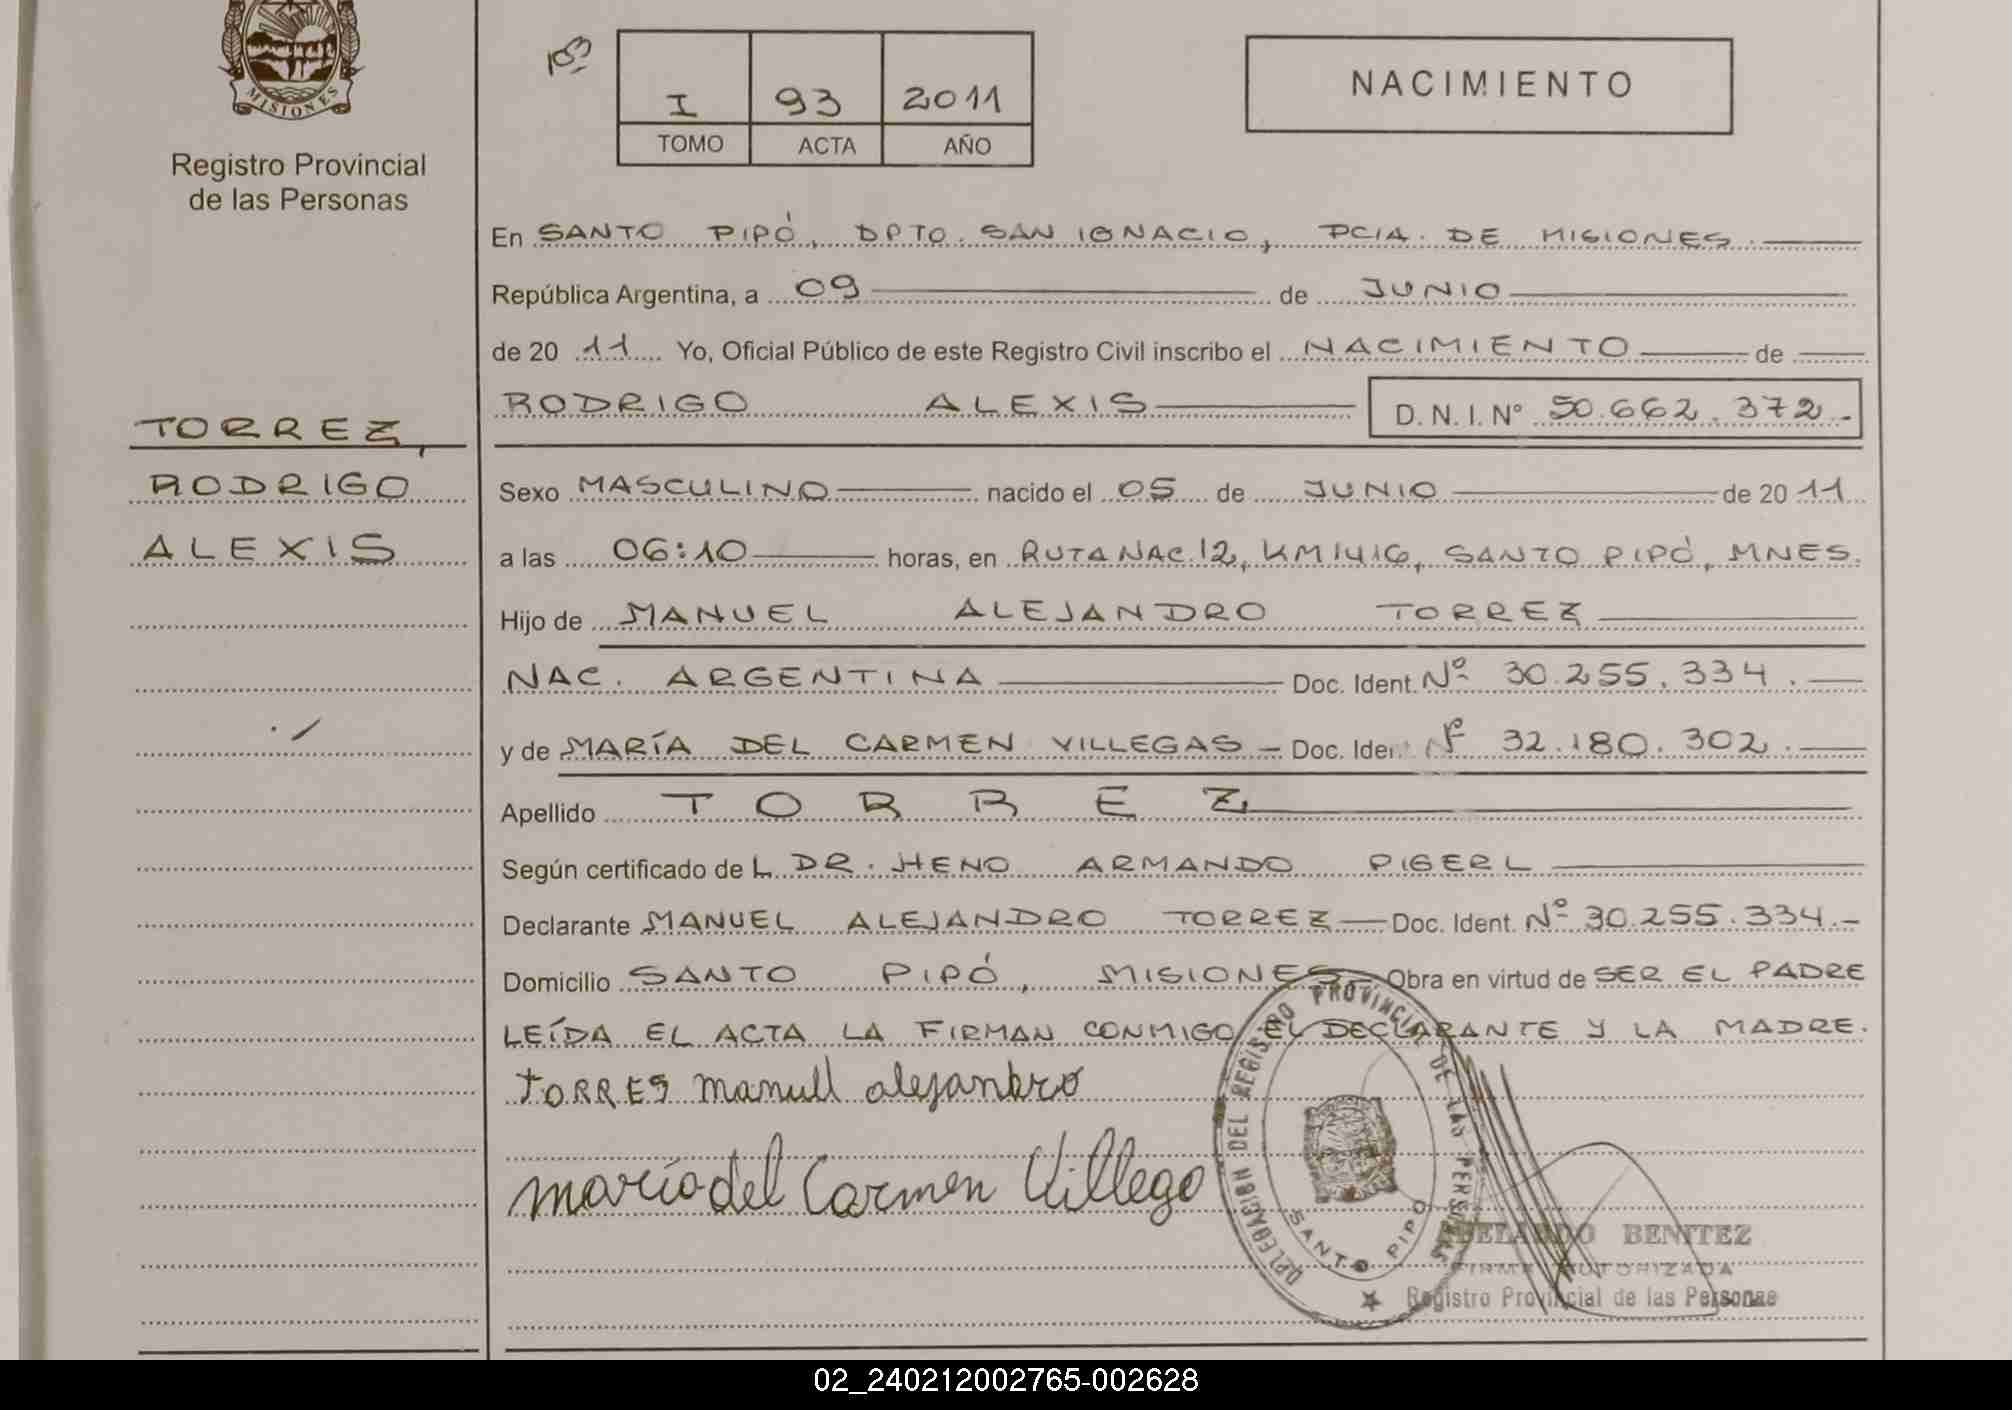 MISIONES
Registro Provincial
de las Personas
TORREZ,
RODRIGO
ALEXIS
I 93 2011
TOMO ACTA AÑO
NACIMIENTO
En SANTO PIPÓ, DPTO. SAN IGNACIO, PCIA. DE MISIONES.
República Argentina, a 09 de JUNIO
de 20 11 Yo, Oficial Público de este Registro Civil inscribo el NACIMIENTO de
RODRIGO ALEXIS D.N.I. N° 50.662.372.-
Sexo MASCULINO nacido el 05 de JUNIO de 20 11
a las 06:10 horas, en RUTA NAC.12, KM1416, SANTO PIPÓ, MNES.
Hijo de MANUEL ALEJANDRO TORREZ
NAC. ARGENTINA Doc. Ident. Nº 30.255.334.
y de MARÍA DEL CARMEN VILLEGAS - Doc. Iden Nº 32.180.302.
Apellido TORREZ
Según certificado de L DR. HENO ARMANDO PIGERL
Declarante MANUEL ALEJANDRO TORREZ Doc. Ident. Nº 30.255.334.-
Domicilio SANTO PIPÓ, MISIONES Obra en virtud de SER EL PADRE
LEÍDA EL ACTA LA FIRMAN CONMIGO EL DECLARANTE Y LA MADRE.
TORRES manuel alejandro
maria del Carmen Villega
DELEGACION DEL REGISTRO PROVINCIAL DE LAS PERSONAS
SANTO PIPO
ABELARDO BENITEZ
FIRMA AUTORIZADA
Registro Provincial de las Personas
02_240212002765-002628